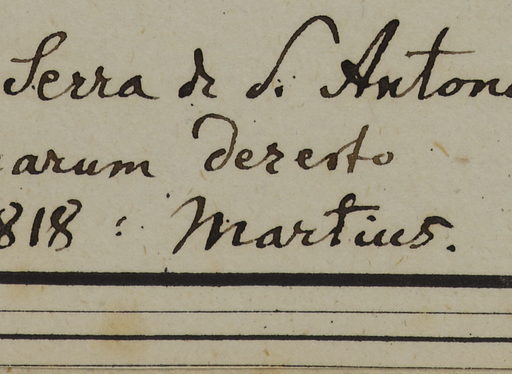 Serra de S. Antonio
arum deserto
818: Martius.